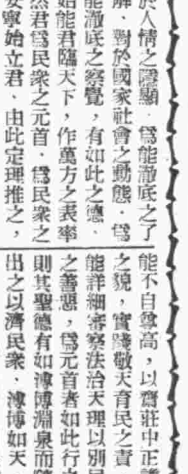 於人情之隱顯．爲能澈底之了
解．對於國家社會之動態．爲
能澈底之察覺，有如此之德．
始能君臨天下，作萬方之表率
然君爲民衆之元首．爲民衆之
安寧始立君．由此定理推之，
能不自尊高，以齋莊中正
之貌，實踐敬天育民之責
能詳細審察法治天理以別
之善惡，爲元首者如此行
則其聖德有如溥博淵泉而
出之以濟民衆．溥博如天